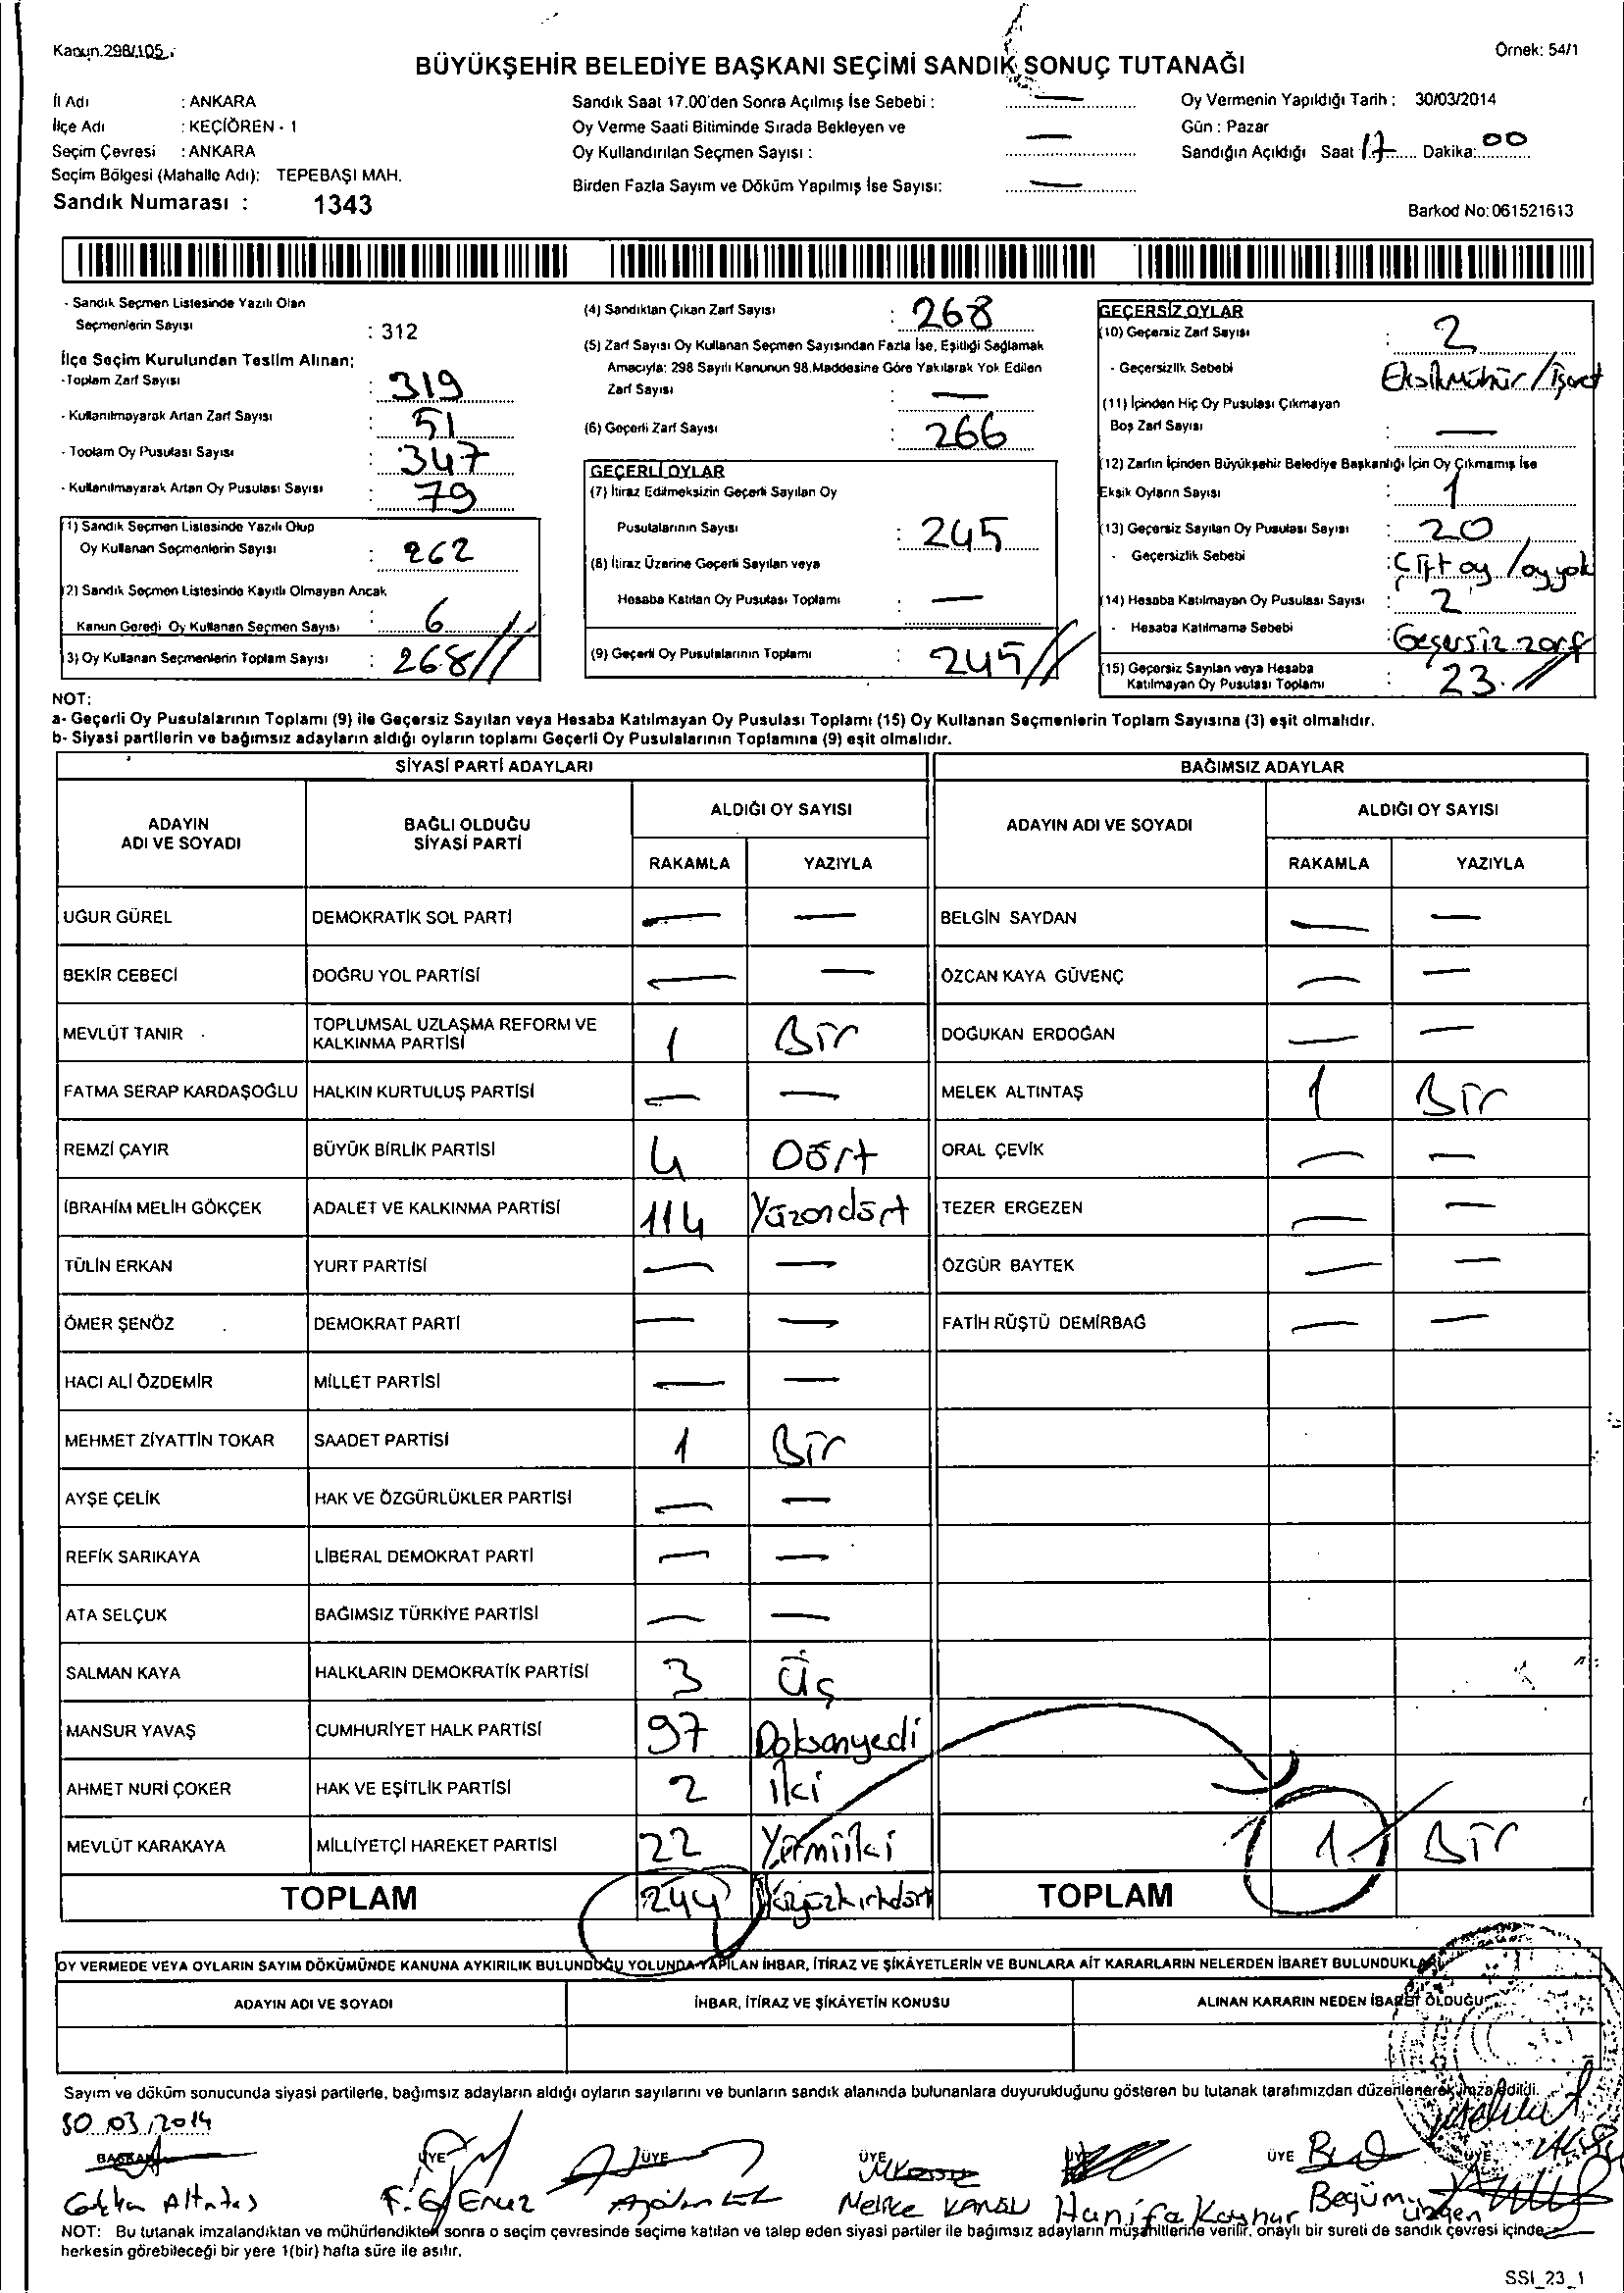 Kanun.298/105
Örnek: 54/1
BÜYÜKŞEHİR BELEDİYE BAŞKANI SEÇİMİ SANDIK SONUÇ TUTANAĞI
İl Adı : ANKARA
İlçe Adı : KEÇİÖREN - 1
Seçim Çevresi : ANKARA
Seçim Bölgesi (Mahalle Adı): TEPEBAŞI MAH.
Sandık Numarası : 1343
Sandık Saat 17.00'den Sonra Açılmış İse Sebebi : —
Oy Verme Saati Bitiminde Sırada Bekleyen ve
Oy Kullandırılan Seçmen Sayısı : —
Birden Fazla Sayım ve Döküm Yapılmış İse Sayısı: —
Oy Vermenin Yapıldığı Tarih : 30/03/2014
Gün : Pazar
Sandığın Açıldığı Saat 17 Dakika: 00
Barkod No: 061521613
- Sandık Seçmen Listesinde Yazılı Olan
Seçmenlerin Sayısı : 312
İlçe Seçim Kurulundan Teslim Alınan;
- Toplam Zarf Sayısı : 319
- Kullanılmayarak Artan Zarf Sayısı : 51
- Toplam Oy Pusulası Sayısı : 347
- Kullanılmayarak Artan Oy Pusulası Sayısı : 79
(1) Sandık Seçmen Listesinde Yazılı Olup
Oy Kullanan Seçmenlerin Sayısı : 262
(2) Sandık Seçmen Listesinde Kayıtlı Olmayan Ancak
Kanun Gereği Oy Kullanan Seçmen Sayısı : 6
(3) Oy Kullanan Seçmenlerin Toplam Sayısı : 268//
(4) Sandıktan Çıkan Zarf Sayısı : 268
(5) Zarf Sayısı Oy Kullanan Seçmen Sayısından Fazla İse, Eşitliği Sağlamak
Amacıyla: 298 Sayılı Kanunun 98.Maddesine Göre Yakılarak Yok Edilen
Zarf Sayısı : —
(6) Geçerli Zarf Sayısı : 266
GEÇERLİ OYLAR
(7) İtiraz Edilmeksizin Geçerli Sayılan Oy
Pusulalarının Sayısı : 245
(8) İtiraz Üzerine Geçerli Sayılan veya
Hesaba Katılan Oy Pusulası Toplamı : —
(9) Geçerli Oy Pusulalarının Toplamı : 245//
GEÇERSİZ OYLAR
(10) Geçersiz Zarf Sayısı : 2
- Geçersizlik Sebebi Eksikmühür/İşaret
(11) İçinden Hiç Oy Pusulası Çıkmayan
Boş Zarf Sayısı : —
(12) Zarfın İçinden Büyükşehir Belediye Başkanlığı İçin Oy Çıkmamış İse
Eksik Oyların Sayısı : 1
(13) Geçersiz Sayılan Oy Pusulası Sayısı : 20
- Geçersizlik Sebebi : Çift oy /oy yok
(14) Hesaba Katılmayan Oy Pusulası Sayısı : 2
- Hesaba Katılmama Sebebi : Geçersiz zarf
(15) Geçersiz Sayılan veya Hesaba
Katılmayan Oy Pusulası Toplamı : 23 //
NOT:
a- Geçerli Oy Pusulalarının Toplamı (9) ile Geçersiz Sayılan veya Hesaba Katılmayan Oy Pusulası Toplamı (15) Oy Kullanan Seçmenlerin Toplam Sayısına (3) eşit olmalıdır.
b- Siyasi partilerin ve bağımsız adayların aldığı oyların toplamı Geçerli Oy Pusulalarının Toplamına (9) eşit olmalıdır.
SİYASİ PARTİ ADAYLARI
ADAYIN ADI VE SOYADI BAĞLI OLDUĞU SİYASİ PARTİ ALDIĞI OY SAYISI
RAKAMLA YAZIYLA
UĞUR GÜREL DEMOKRATİK SOL PARTİ — —
BEKİR CEBECİ DOĞRU YOL PARTİSİ — —
MEVLÜT TANIR TOPLUMSAL UZLAŞMA REFORM VE KALKINMA PARTİSİ 1 Bir
FATMA SERAP KARDAŞOĞLU HALKIN KURTULUŞ PARTİSİ — —
REMZİ ÇAYIR BÜYÜK BİRLİK PARTİSİ 4 Dört
İBRAHİM MELİH GÖKÇEK ADALET VE KALKINMA PARTİSİ 114 Yüzondört
TÜLİN ERKAN YURT PARTİSİ — —
ÖMER ŞENÖZ DEMOKRAT PARTİ — —
HACI ALİ ÖZDEMİR MİLLET PARTİSİ — —
MEHMET ZİYATTİN TOKAR SAADET PARTİSİ 1 Bir
AYŞE ÇELİK HAK VE ÖZGÜRLÜKLER PARTİSİ — —
REFİK SARIKAYA LİBERAL DEMOKRAT PARTİ — —
ATA SELÇUK BAĞIMSIZ TÜRKİYE PARTİSİ — —
SALMAN KAYA HALKLARIN DEMOKRATİK PARTİSİ 3 Üç
MANSUR YAVAŞ CUMHURİYET HALK PARTİSİ 97 Doksanyedi
AHMET NURİ ÇOKER HAK VE EŞİTLİK PARTİSİ 2 iki
MEVLÜT KARAKAYA MİLLİYETÇİ HAREKET PARTİSİ 22 Yirmiiki
TOPLAM 244 ikiyüzkırkdört
BAĞIMSIZ ADAYLAR
ADAYIN ADI VE SOYADI ALDIĞI OY SAYISI
RAKAMLA YAZIYLA
BELGİN SAYDAN — —
ÖZCAN KAYA GÜVENÇ — —
DOĞUKAN ERDOĞAN — —
MELEK ALTINTAŞ 1 Bir
ORAL ÇEVİK — —
TEZER ERGEZEN — —
ÖZGÜR BAYTEK — —
FATİH RÜŞTÜ DEMİRBAĞ — —
TOPLAM 1 Bir
OY VERMEDE VEYA OYLARIN SAYIM DÖKÜMÜNDE KANUNA AYKIRILIK BULUNDUĞU YOLUNDA YAPILAN İHBAR, İTİRAZ VE ŞİKÂYETLERİN VE BUNLARA AİT KARARLARIN NELERDEN İBARET BULUNDUKLARI
ADAYIN ADI VE SOYADI İHBAR, İTİRAZ VE ŞİKÂYETİN KONUSU ALINAN KARARIN NEDEN İBARET OLDUĞU
Sayım ve döküm sonucunda siyasi partilerle, bağımsız adayların aldığı oyların sayılarını ve bunların sandık alanında bulunanlara duyurulduğunu gösteren bu tutanak tarafımızdan düzenlenerek imza edildi.
30.03/2014
BAŞKAN ÜYE ÜYE ÜYE ÜYE ÜYE ÜYE
Melike KANSU Hanifa Begüm
NOT: Bu tutanak imzalandıktan ve mühürlendikten sonra o seçim çevresinde seçime katılan ve talep eden siyasi partiler ile bağımsız adayların müşahitlerine verilir, onaylı bir sureti de sandık çevresi içinde
herkesin görebileceği bir yere 1(bir) hafta süre ile asılır.
SSI_23_1